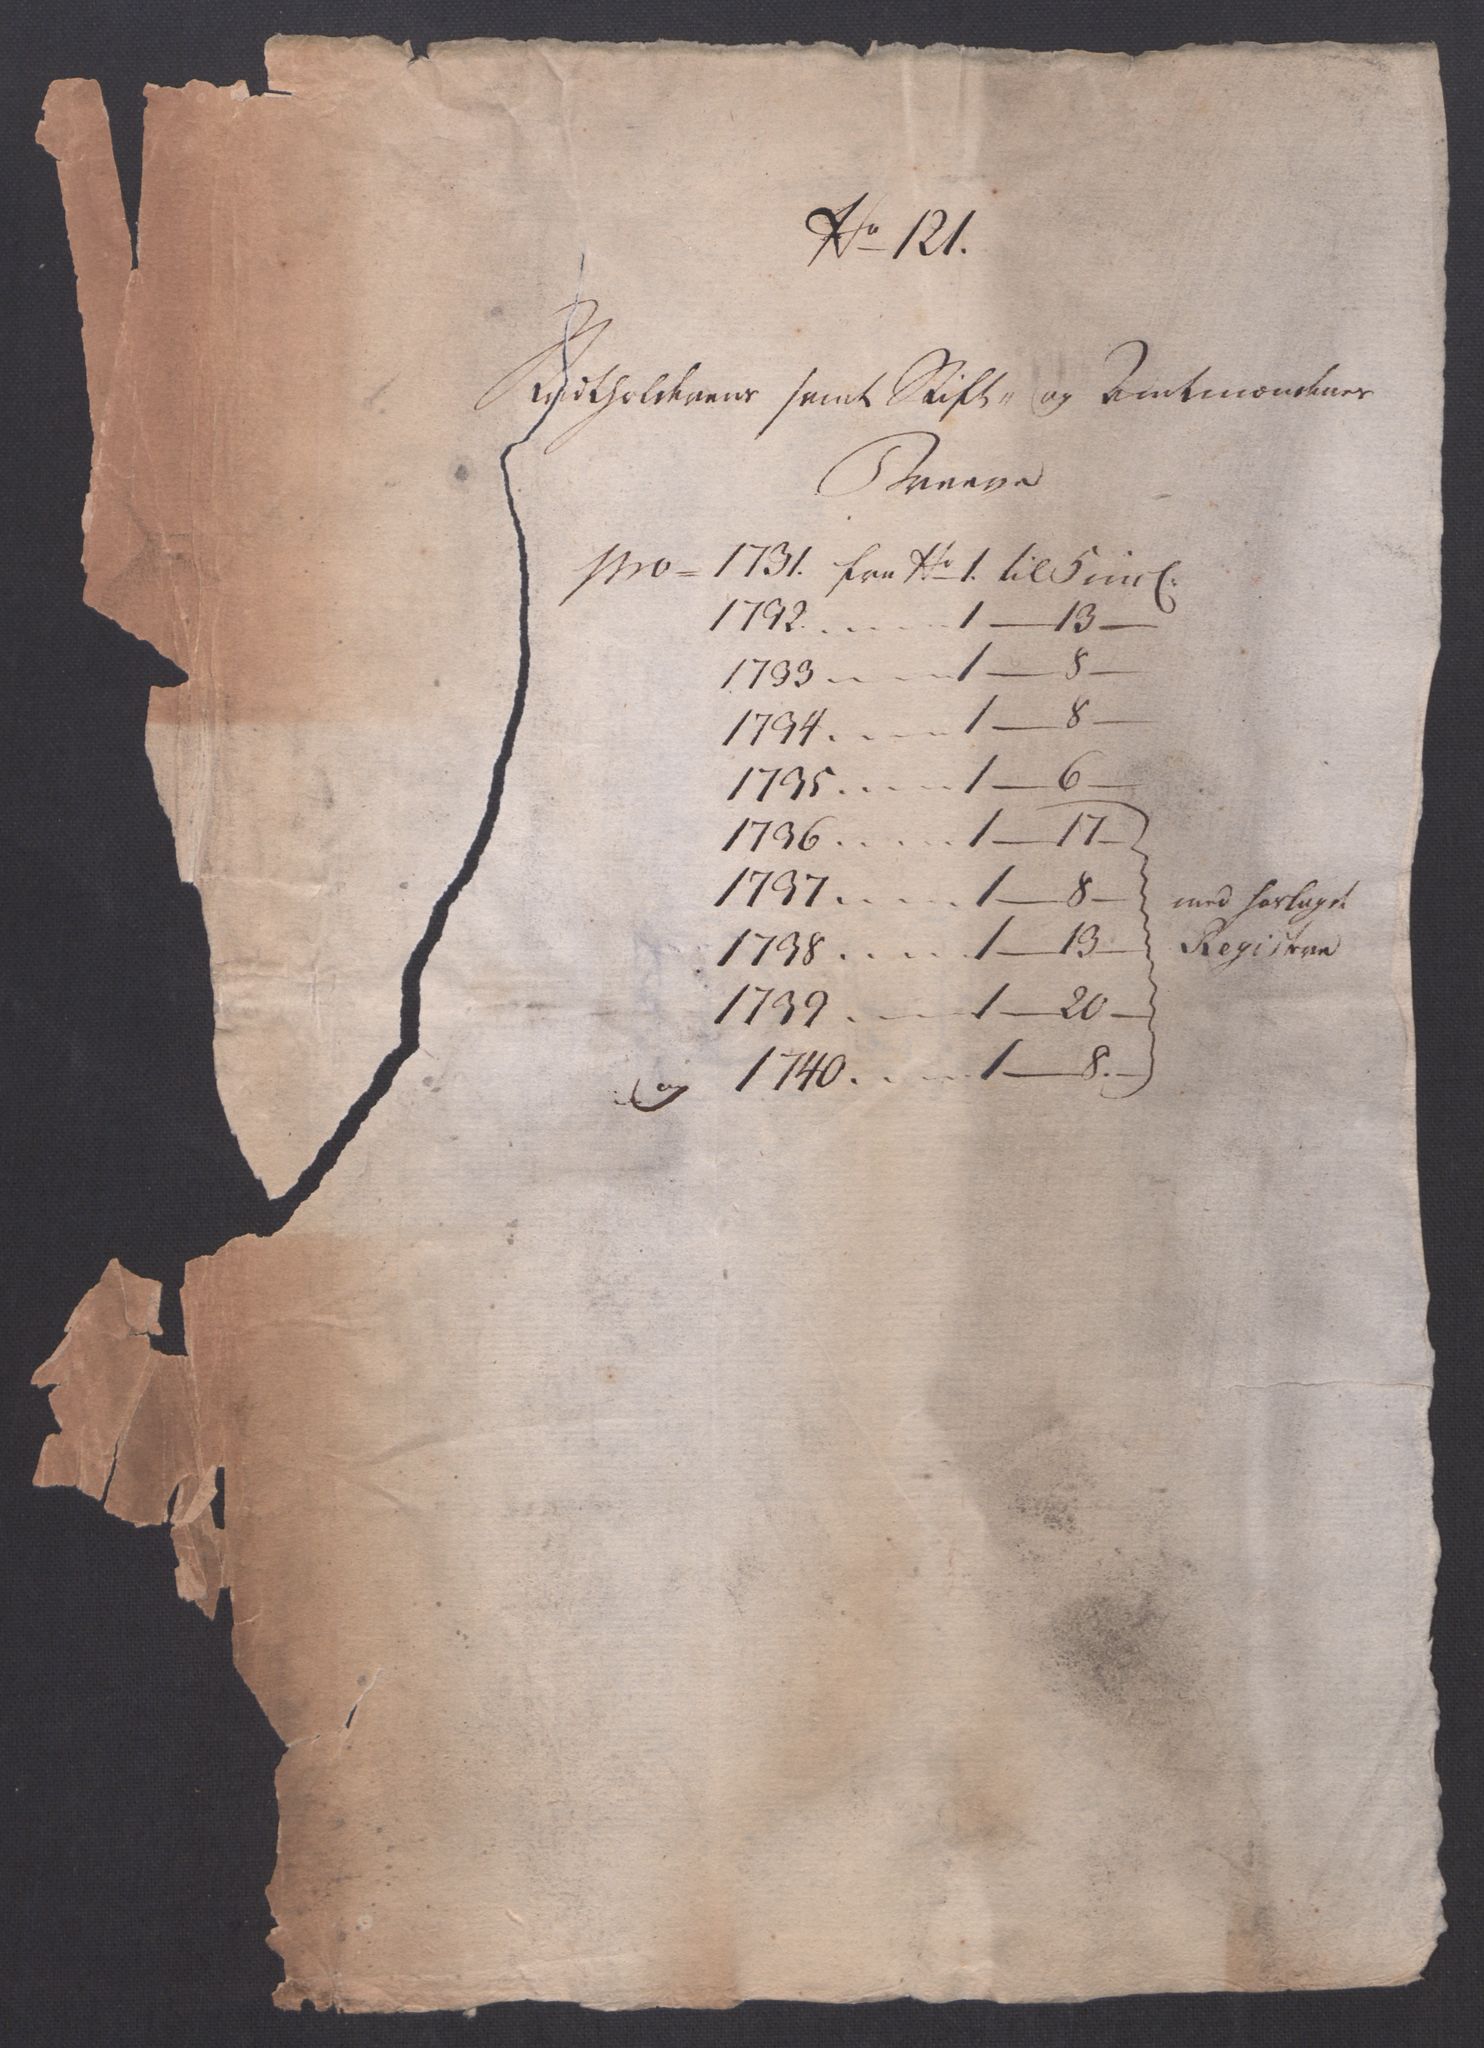 No 121.
Stadtholderens samt Stift- og Amtmændenes
Breeve
pro = 1731. fra No 1. til 5 incl:
1732. . . . . 1 — 13 —
1733 . . . . 1 — 8 —
1734. . . . . 1 — 8 —
1735. . . . . 1 — 6 —
1736 . . . . . 1 — 17 —
1737. . . . . 1 — 8 — med forlagde
1738 . . . . . 1 — 13 — Registere
1739 . . . . . 1 — 20 —
og 1740. . . . . 1 — 8. —